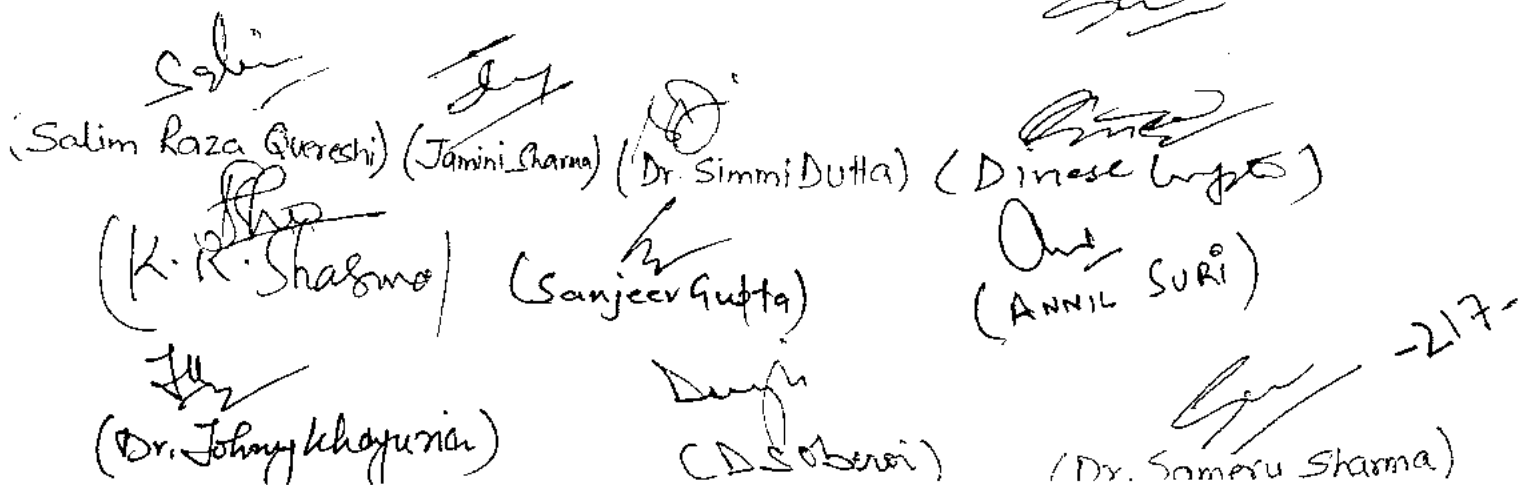 (Salim Raza Quereshi) (Jamini Sharma) (Dr. Simmi Dutta) (Dinesh Gupta)
(K. R. Sharma) (Sanjeev Gupta) (ANNIL SURI)
-217-
(Dr. Johny Khajuria) (D S Oberoi) (Dr. Sameru Sharma)